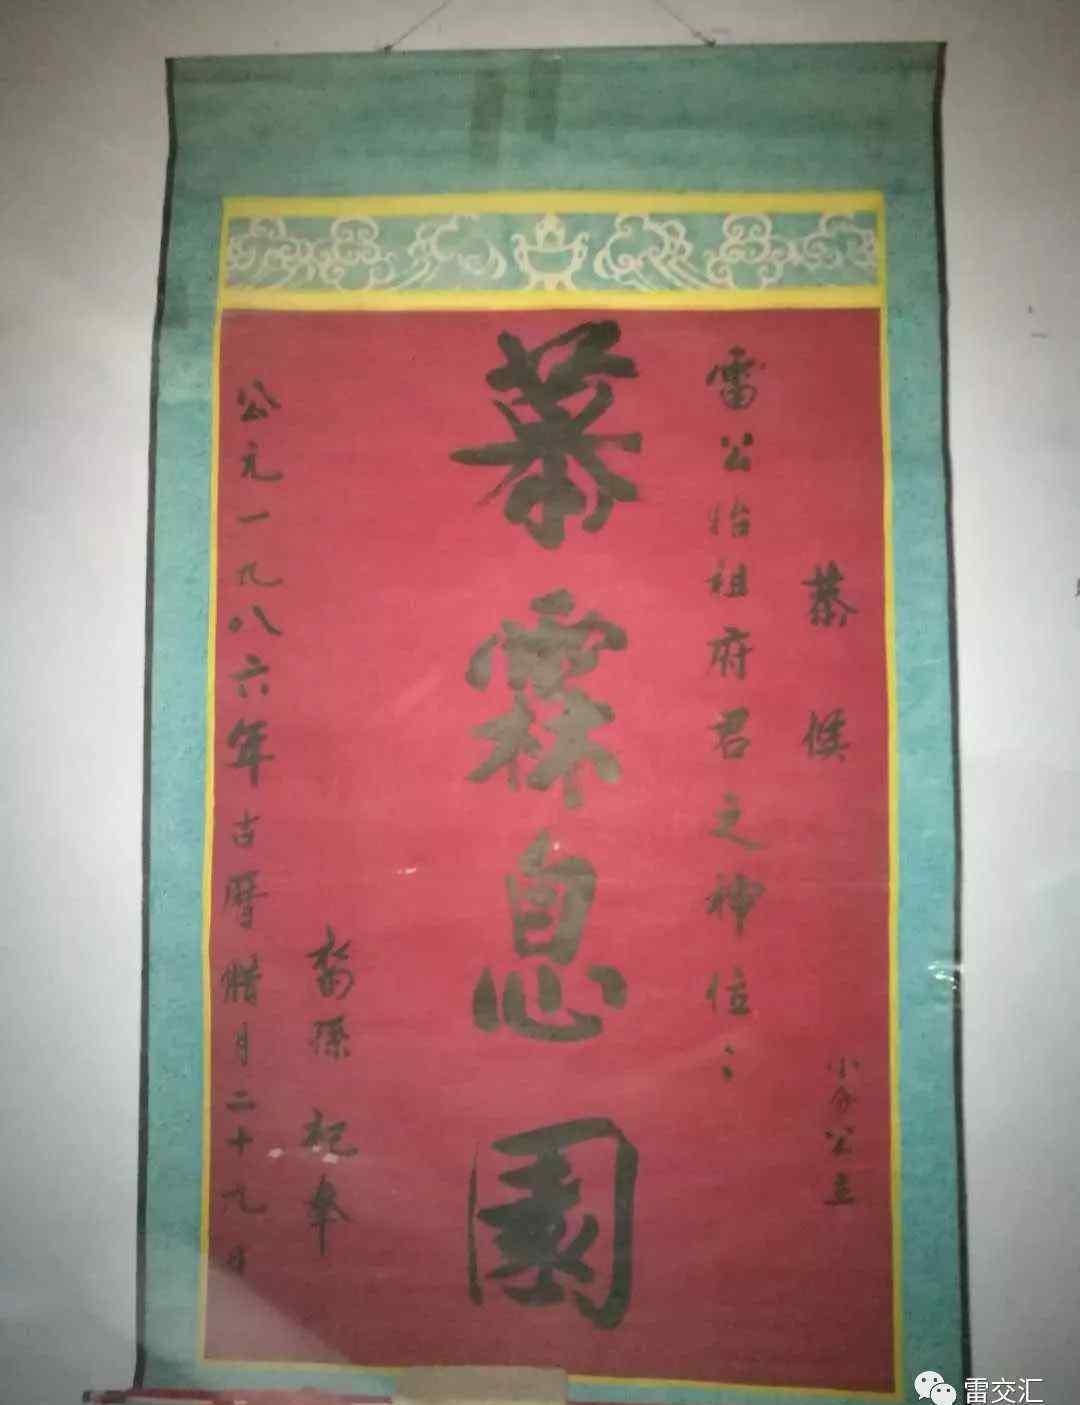 慕候
小分公立
雷公怡祖府君之神位：
慕霖息園
裔孫 祀奉
公元一九八六年古曆腊月二十九日
雷交汇